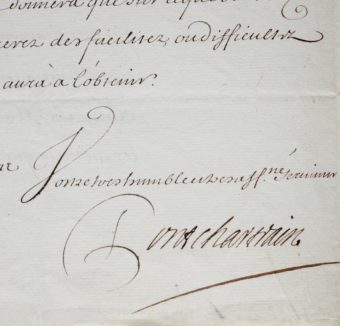 donnera que sur
erez des facilitez, ou difficultez
aura à l'obtenir.
Vostre tres humble et tres aff.né serviteur
Pontchartrain